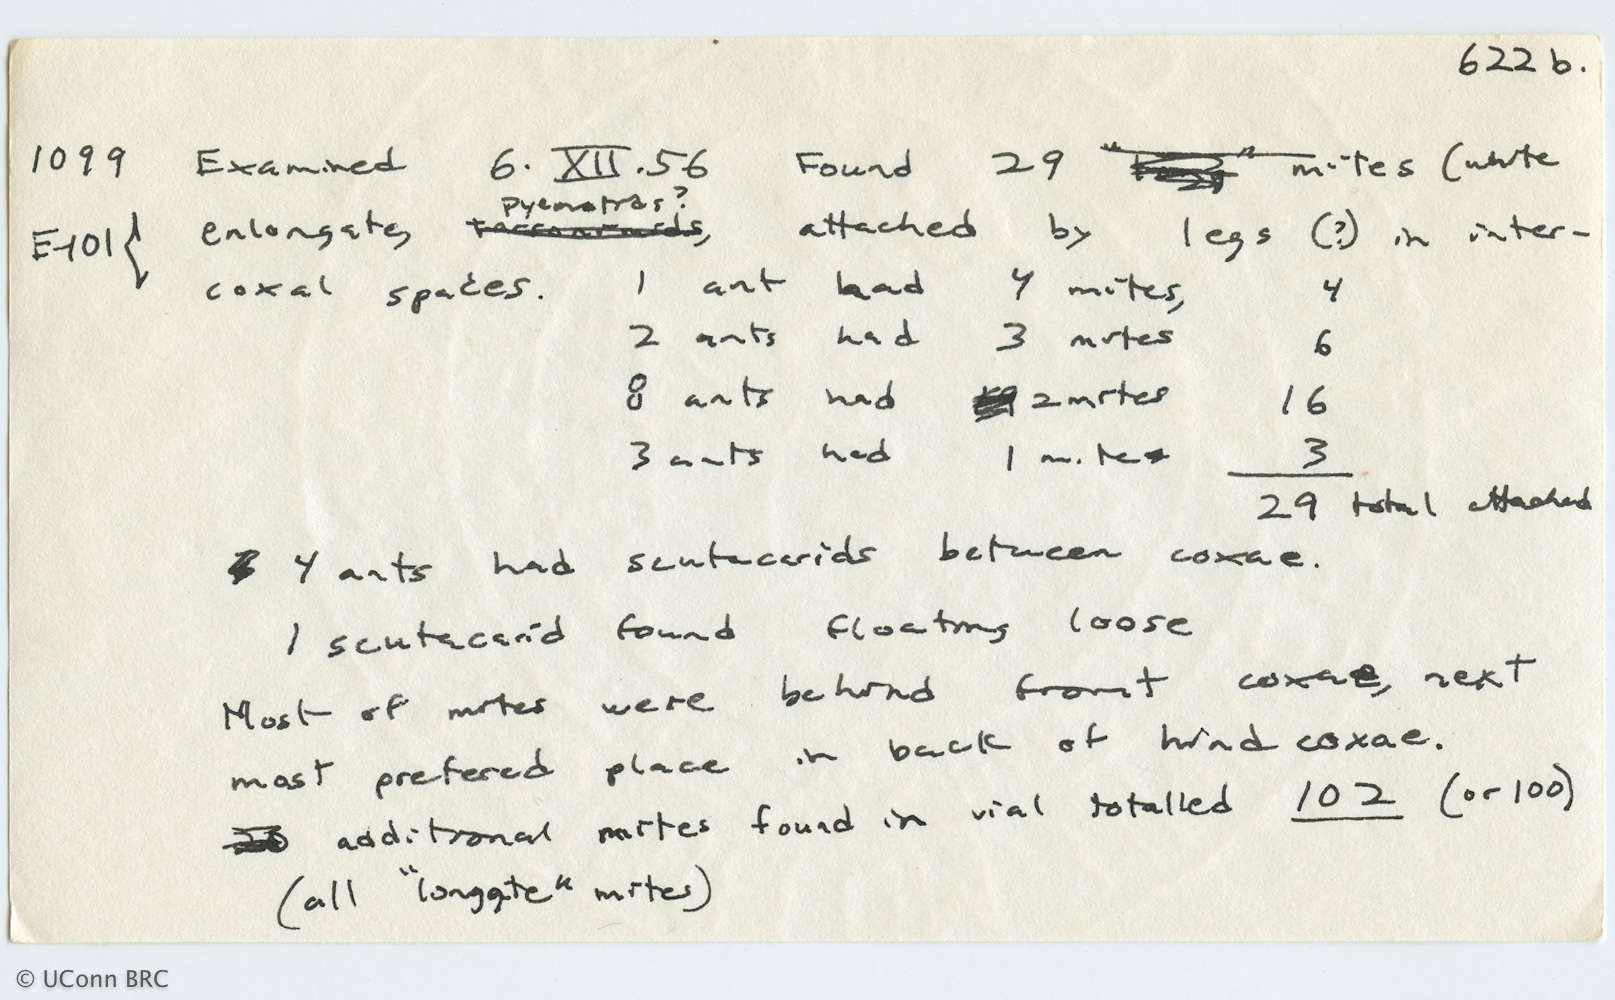 622 b.
1099 Examined 6. XII .56 Found 29 " " mites (white
pyemotras?
E-101 { enlongate, attached by legs (?) in inter-
coxal spaces. 1 ant had 4 mites, 4
2 ants had 3 mites 6
8 ants had 2 mites 16
3 ants had 1 mite 3
29 total attached
4 ants had scutacarids between coxae.
1 scutacarid found floating loose
Most of mites were behind front coxae, next
most prefered place in back of hind coxae.
additional mites found in vial totalled 102 (or 100)
(all "longate" mites)
© UConn BRC